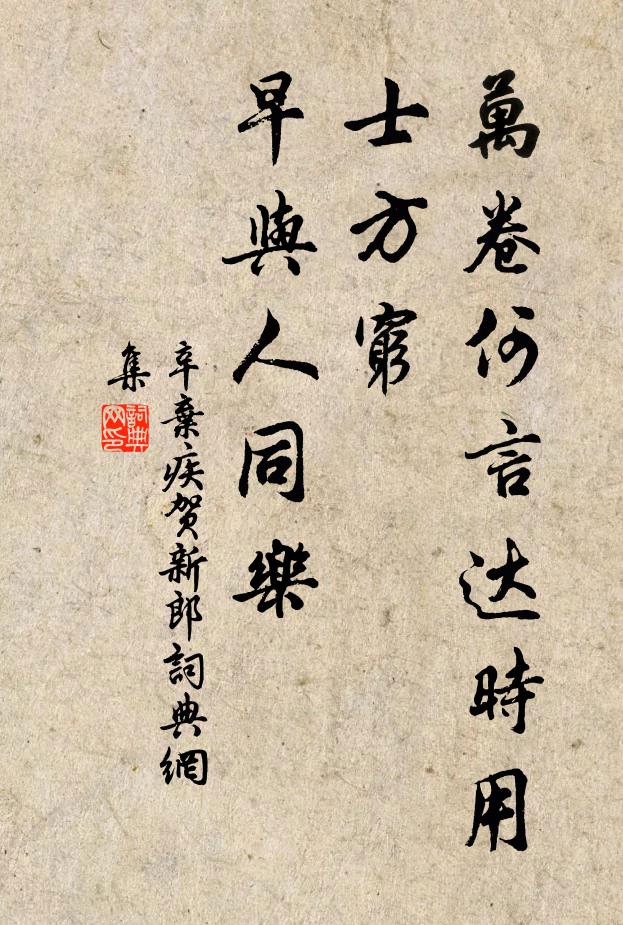 萬卷何言达時用
士方窮
早與人同樂
辛棄疾贺新郎詞典網
集
詞典
网印